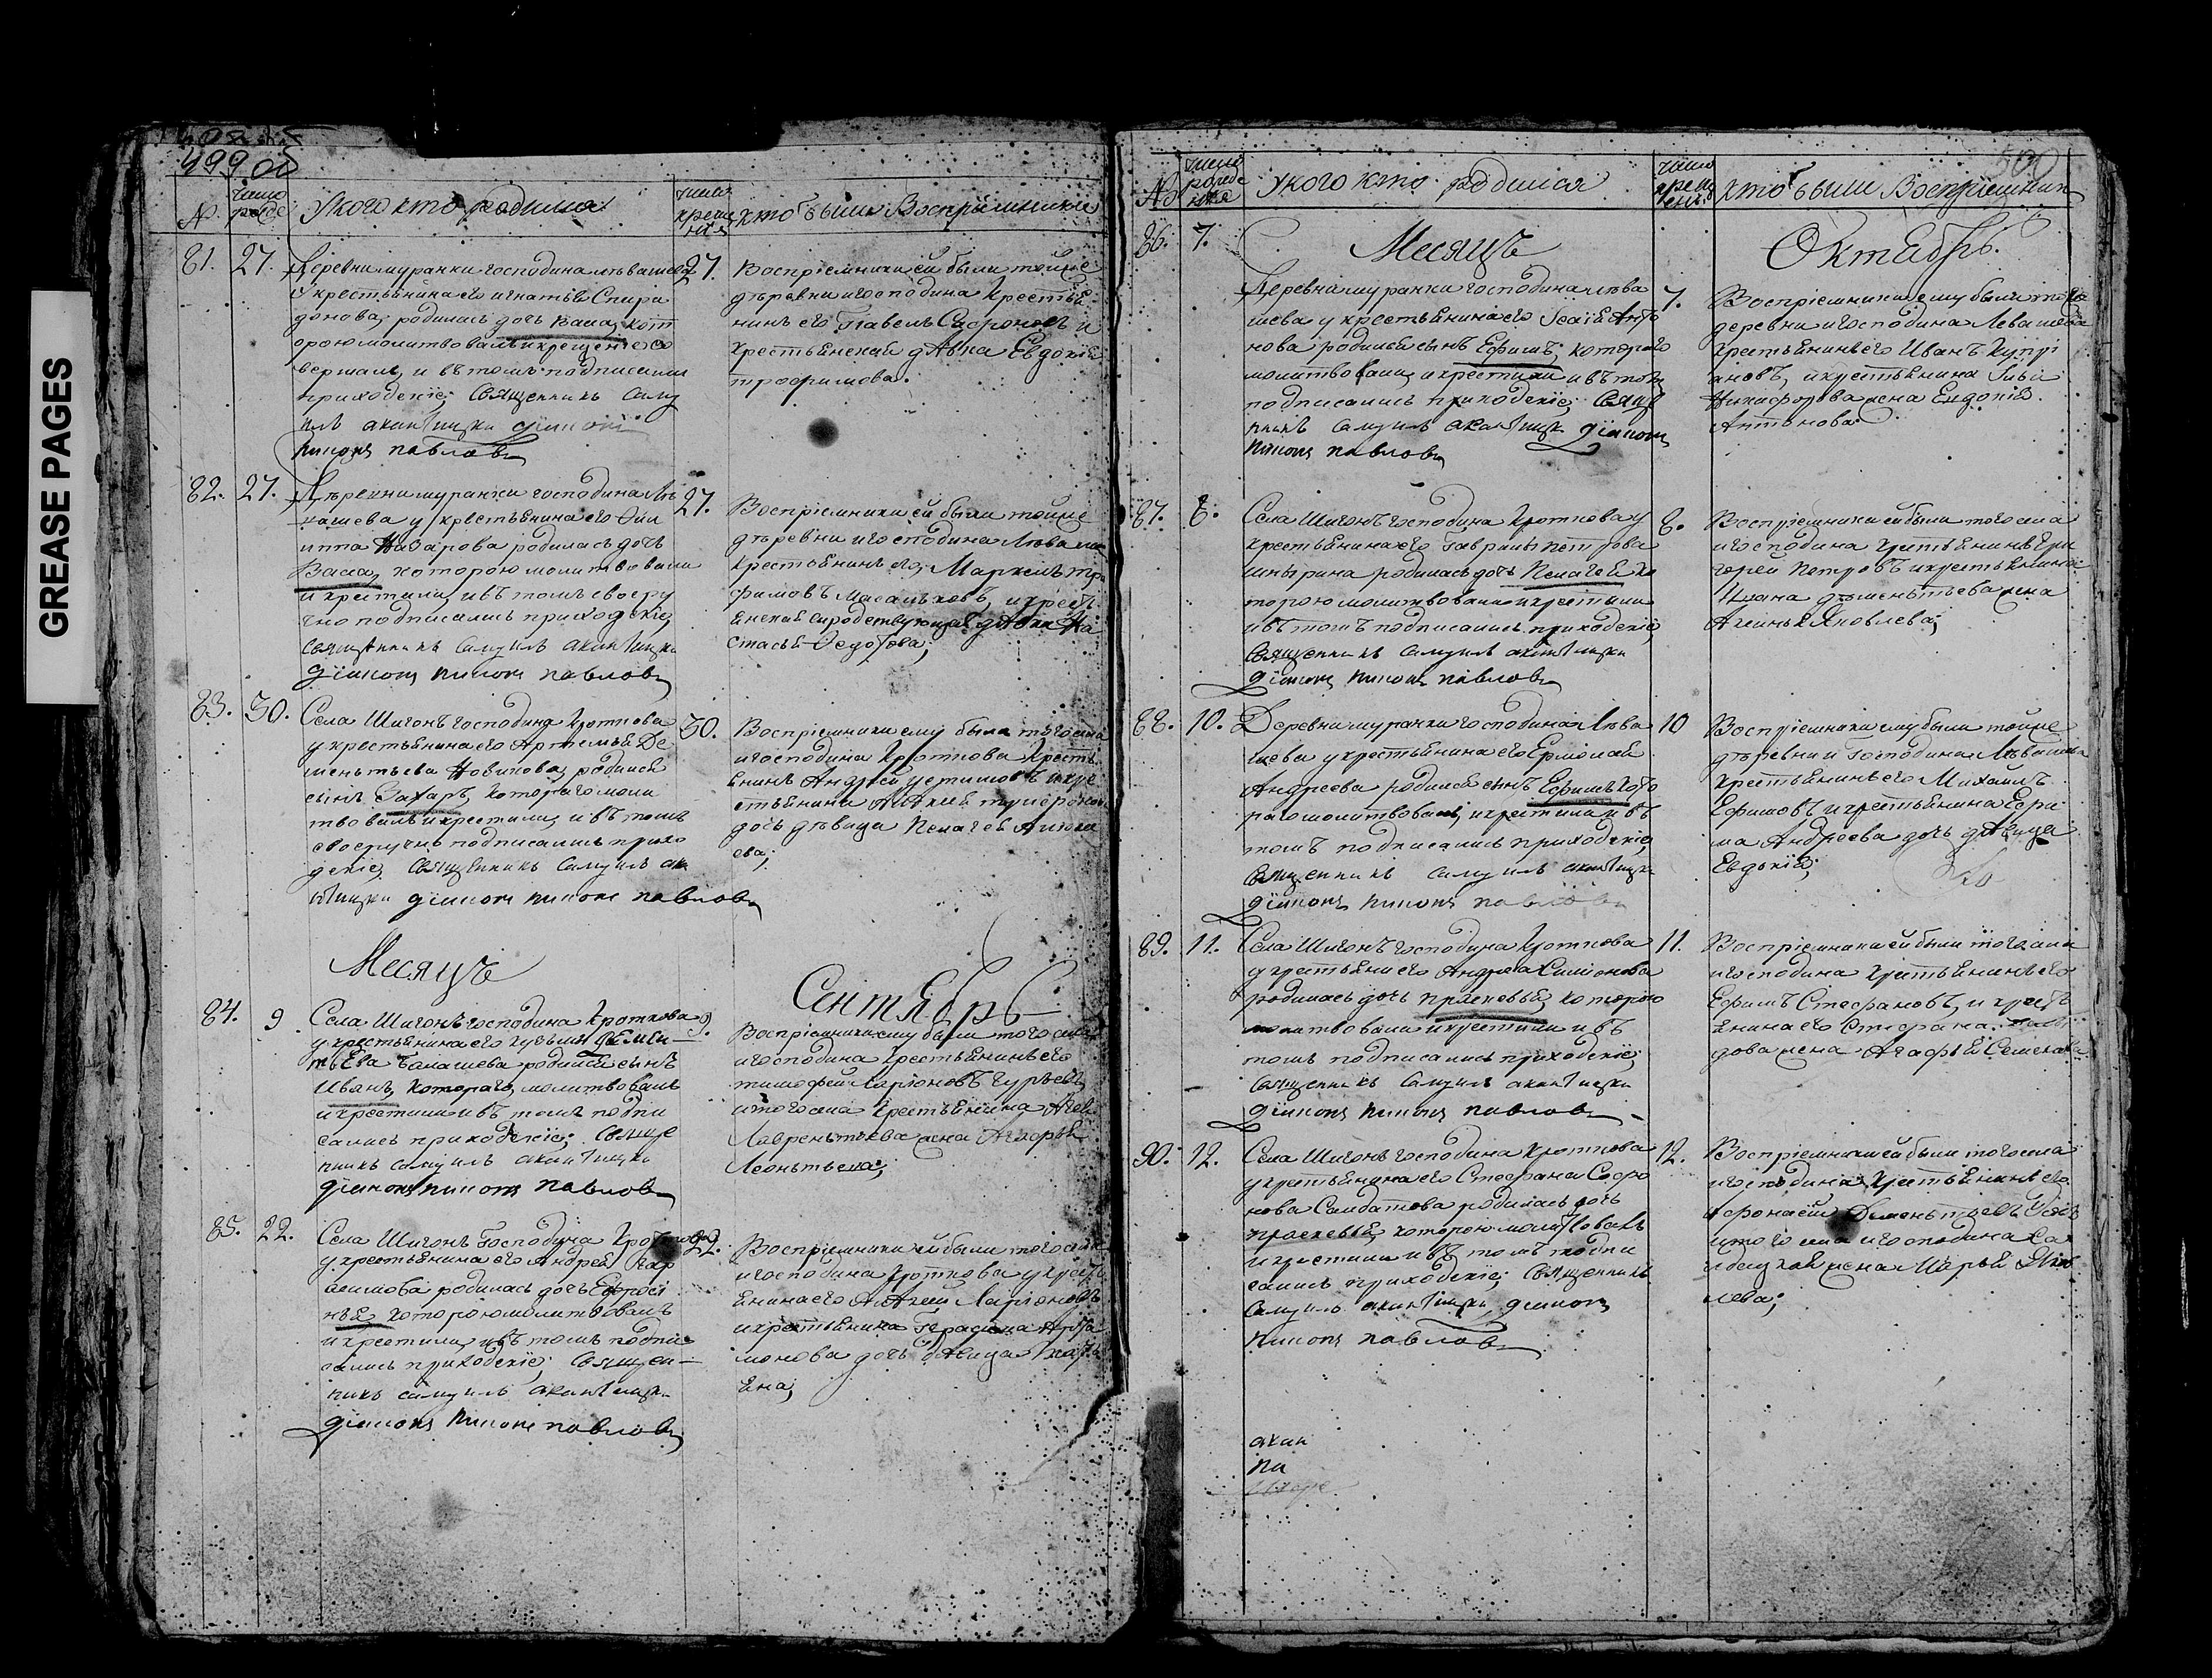 GREASE PAGES
499 об
№.
число рожде
У кого кто родился
число крещенія
кто были Восприемники
81. 27.
Деревни муранки господина левашева
У крестьянина его игнатья Спири
донова, родилась дочь Васса, кот
орою молитвовалъ и крещение со
вершалъ, и въ томъ подписались
приходскіе; Священникъ Саму
илъ акантицки діаконъ
никонъ павловъ
27.
Восприемники ей были тойже
деревни и господина крестья
нинъ его Павелъ Сафроновъ и
крестьянская дѣвка Евдокія
трофимова.
82. 27.
Деревни муранки господина Ле
вашева у крестьянина его Фили
ппа Назарова родилась дочь
Васса, которою молитвовали
и крестили, и въ томъ своеру
чно подписались приходскіе,
Священникъ Самуилъ акантицки
діаконъ никонъ павловъ
27.
Восприемники ей были тойже
деревни и господина Левашева
крестьянинъ его, Маркелъ тро
фимовъ, и крест
ьянская дѣвка На
стасья Федотова;
83. 30.
Села Шигонъ господина Кроткова
у крестьянина его Артемья Де
меньтьева Новикова, родился
сынъ Захаръ, котораго моли
твовалъ и крестили, и въ томъ
своеручно подписались прихо
дскіе, Священникъ Самуилъ ака
нтицки діаконъ никонъ павловъ
30.
Восприемники ему были того села
и господина Кроткова Кресть
янинъ Андрей устимовъ и кре
стьянина
дочь девица Пелагея Алексе
ева;
Месяцъ
Сентябрь
84. 9.
Села Шигонъ господина Кроткова
у крестьянина его кузьмы Демен—
тьева Балашева родился сынъ
Иванъ, котораго, молитвовалъ
и крестили и въ томъ подпи
сались приходскіе; Священ
никъ самуилъ акантицки
діаконъ никонъ павловъ
9.
Восприемники ему были того села
и господина крестьянинъ его
тимофей Ларіоновъ Гурьевъ
и того села крестьянина
Лавреньтьева жена
Леоньтьева;
85. 22.
Села Шигонъ Господина Кроткова
у крестьянина его Андрея Хар
лампова родилась дочь Ефроси
нья которою молитвовалъ
и крестили, и въ томъ подпи
сались приходскіе; Священ—
никъ самуилъ акантицки
діаконъ никонъ павловъ
22.
Восприемники ей были того села
и господина Кроткова у крест
янина его Алексей Ларіоновъ
и крестьянина Герасима Арта
монова дочь девица
500
№
число рожде нія
У кого кто родился
число креще нія
кто были Восприемники
86. 7.
Месяцъ
Октябрь.
Деревни муранки господина лева
шева у крестьянина его Исаія Анто
нова родился сынъ Ефимъ, котораго
молитвовали, и крестили и въ томъ
подписались приходскіе; Свяще
нникъ Самуилъ акантицки діаконъ
никонъ павловъ
7.
Восприемники ему были тойже
деревни и господина Левашева
крестьянинъ его Иванъ Купрі
яновъ, и крестьянина Ильи
Никифорова жена Евдокія
Антонова
87. 8.
Села Шигонъ господина Кроткова у
крестьянина его Гаврилы петрова
шпырина родилась дочь Пелагея ко
торою молитвовали и крестили
и въ томъ подписались приходскіе
Священникъ Самуилъ акантицки
діаконъ никонъ павловъ
8.
Восприемники ей были того села
и господина крестьянинъ Гри
горей Петровъ и крестьянина
Ивана деменьтьева жена
Яковлева;
88. 10.
Деревни муранки господина Лева
шева у крестьянина его Ермолая
Андреева родился сынъ Ефимъ кото
раго молитвовали, и крестили и въ
томъ подписались приходскіе,
Священникъ Самуилъ акантицки
діаконъ никонъ павловъ
10
Восприемники ему были тойже
деревни и господина Левашева
крестьянинъ его Михаилъ
Ефимовъ и крестьянина Ефи
ма Андреева дочь девица
Евдокія;
89. 11.
Села Шигонъ господина Кроткова
у крестьяни его Андрея Симонова
родилась дочь прасковья, которою
молитвовали и крестили и въ
томъ подписались приходскіе;
Священникъ Самуилъ акантицки
діаконъ никонъ павловъ
11.
Восприемники ей были того села
и господина крестьянинъ его
Ефимъ Стефановъ, и крест
янина его Стефана
дова жена Агафья Семенова
90. 12.
Села Шигонъ господина Кроткова
у крестьянина его Стефана Софро
нова Салдатова родилась дочь
прасковья, которою молитвовалъ
и крестили и въ томъ подпи
сались приходскіе; Священникъ
Самуилъ акантицки, діаконъ
никонъ павловъ
12.
Восприемники ей были того села
и господина крестьянинъ его
Афонасей Деменьтьевъ
и того села и господина
жена Марья Яков
лева;
акан
ни